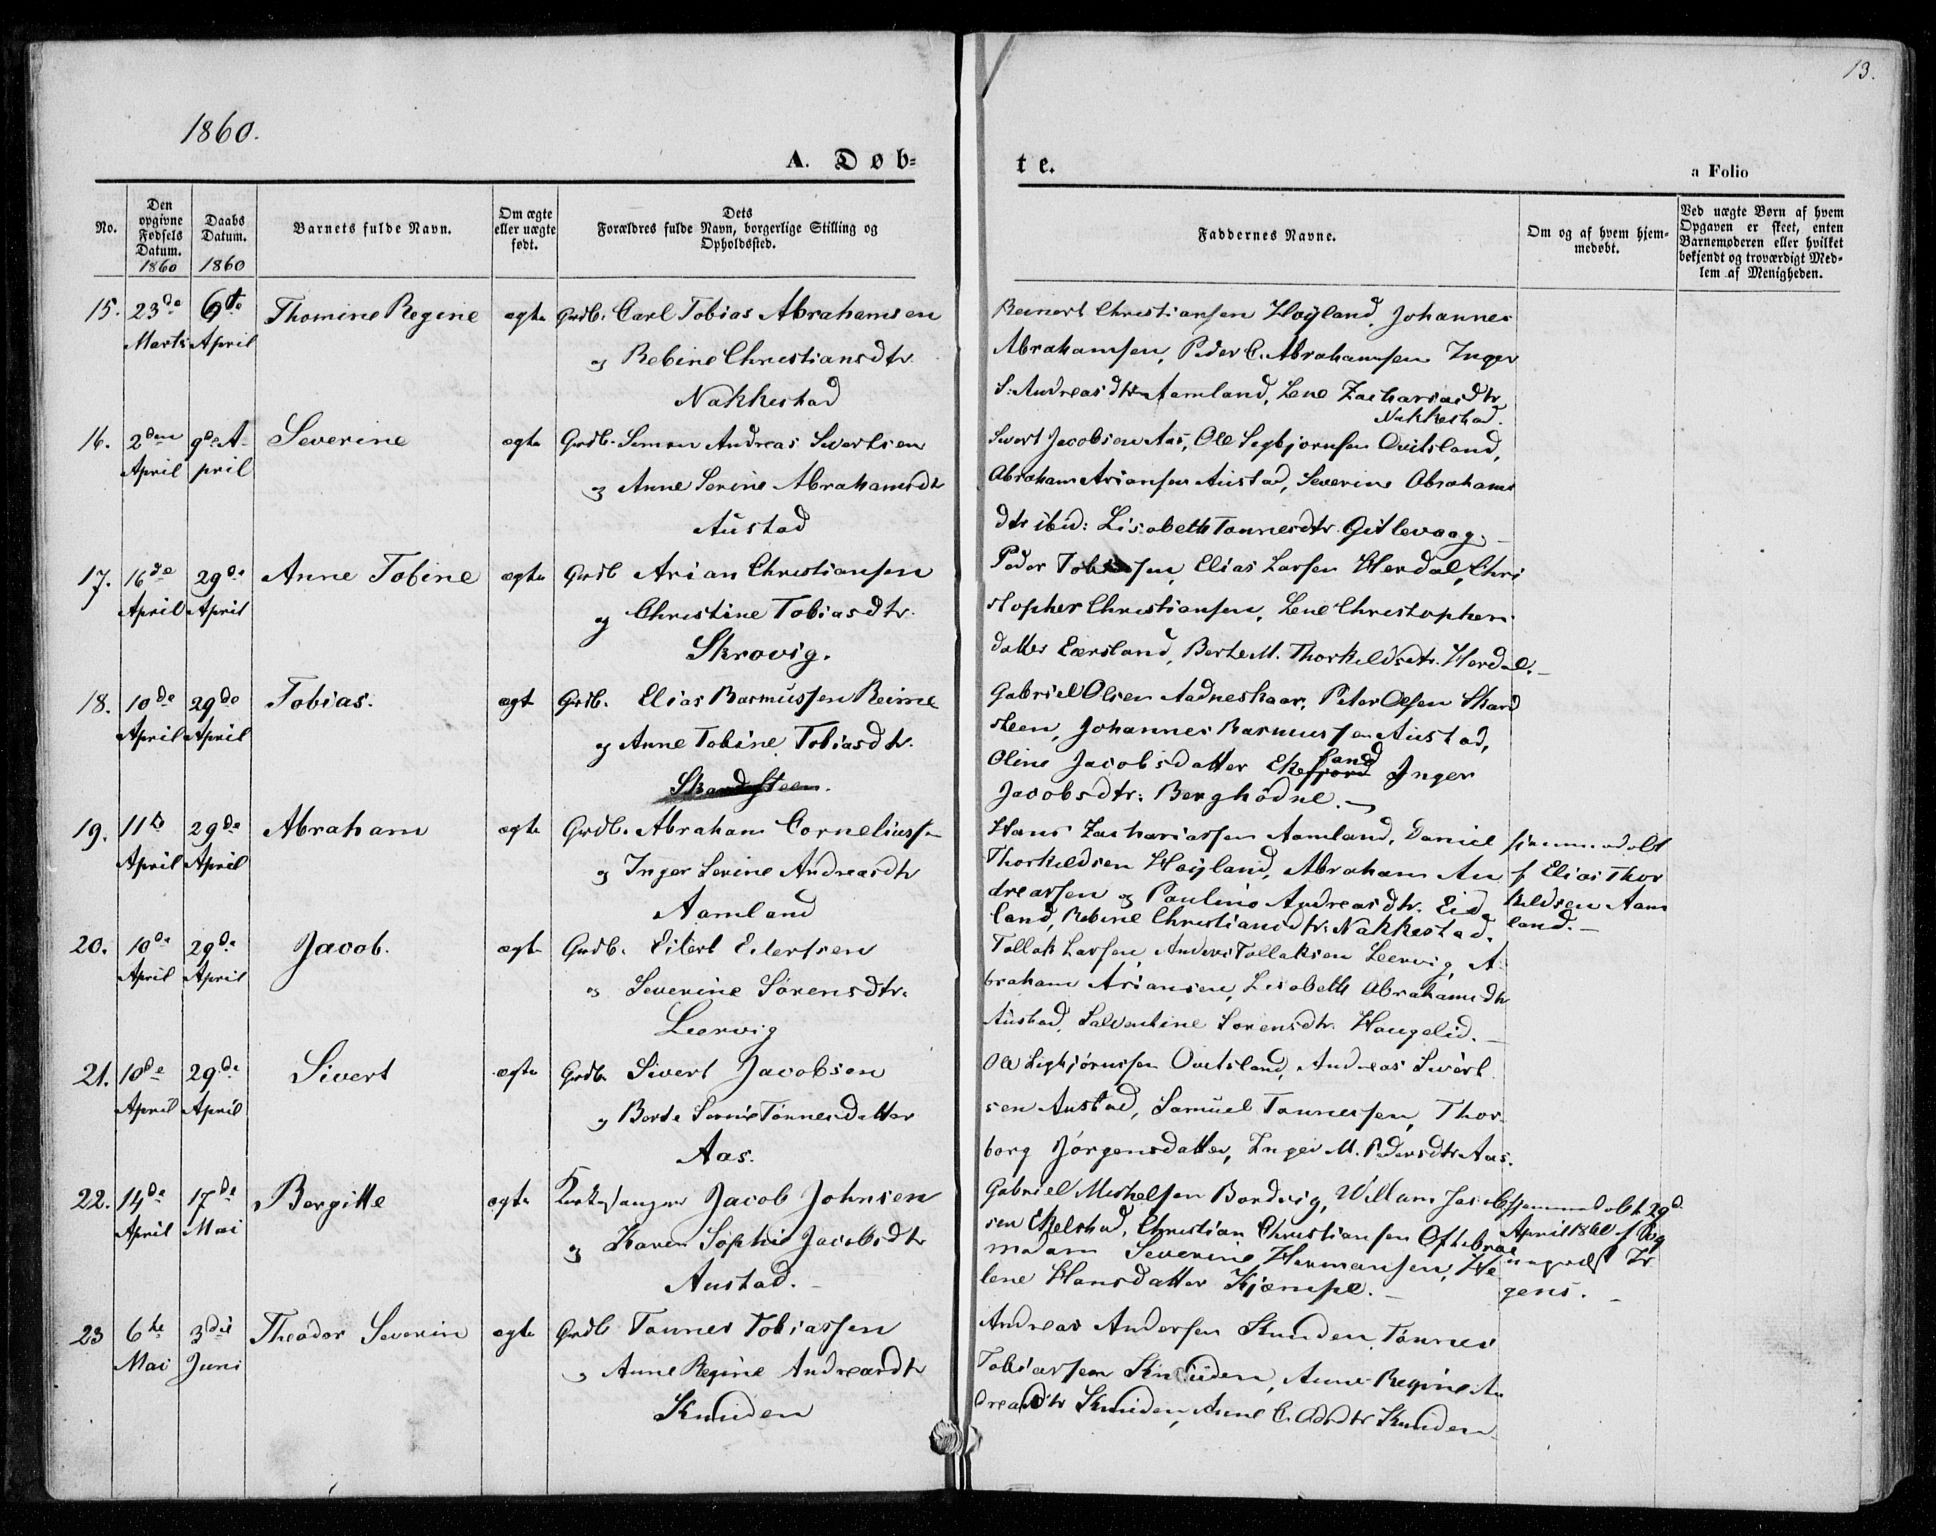 13.
1860.
A. Døb-
te.
a Folio
No.
Den opgivne Fødsels Datum. 1860
Daabs Datum. 1860
Barnets fulde Navn.
Om ægte eller uægte født.
Dets Forældres fulde Navn, borgerlige Stilling og Opholdssted.
Faddernes Navne.
Om og af hvem hjemmedøbt.
Ved uægte Børn af hvem Opgaven er skeet, enten Barnemoderen eller hvilket bekjendt og troværdigt Medlem af Menigheden.
15. 23de 9de Thomine Regine ægte Grdb. Carl Tobias Abrahamsen
Marts April og Rebine Christiansdtr.
Nakkestad
Reinert Christiansen Høyland, Johannes
Abrahamsen, Peder C. Abrahamsen Inger
S. Andreasdtr Aamland, Lene Zachariasdtr
Nakkestad.
16. 2den 9de A- Severine ægte Grdb. Simon Andreas Sivertsen
April pril og Anne Serine Abrahamsdtr
Austad
Sivert Jacobsen Aas, Ole Sigbjørnsen Qvitsland,
Abraham Ariansen Austad, Severine Abrahams
dtr ibid: Lisabeth Tønnesdtr. Gitlevaag.
17. 16de 29de Anne Tobine ægte Grdb Arian Christiansen
April April og Christine Tobiasdtr.
Skrøvig.
Peder Tobiassen, Elias Larsen Herdal, Chri
stopher Christiansen, Lene Christophers
datter Eersland, Berte M. Thorkildsdtr. Herdal.
18. 10de 29de Tobias. ægt Grdb. Elias Rasmussen Reime
April April og Anne Tobine Tobiasdtr.
Skardsteen.
Gabriel Olsen Aadneskaar, Peter Olsen Skard
steen, Johannes Rasmussen Austad,
Oline Jacobsdatter Ekeland Inger
Jacobsdtr. Berghødne.
19. 11te 29de Abraham ægte Grdb. Abraham Corneliussen
April April og Inger Serine Andreasdtr
Aamland
Hans Zachariassen Aamland, Daniel
Thorkildsen Høyland, Abraham An
dreassen og Pauline Andreasdtr. Eid
land, Rebine Christiansdtr. Nakkestad.
hjemmedøbt
f Elias Thor
kildsen Aam
land.
20. 10de 29de Jacob. ægt Grdb. Eilert Eilertsen
April April og Severine Sørensdtr.
Leervig
Tollak Larsen, Anders Tollaksen Leervig, A-
braham Ariansen, Lisabeth Abrahamsdtr
Austad, Salventine Sørensdtr. Haugelid.
21. 10de 29de Sivert ægte Grdb. Sivert Jacobsen
April April og Berte Serine Tønnesdatter
Aas.
Ole Sigbjørnssen Qvitsland, Andreas Sivert
sen Austad, Samuel Tønnessen, Thor
borg Jørgensdatter, Inger M. Pedersdtr Aas.
22. 14de 17de Bergitte ægte Kirkesanger Jacob Johnsen
April Mai og Karen Sophie Jacobsdtr
Austad.
Gabriel Michelsen Bordvig, Willam Jacob
sen Ekelstad, Christian Christiansen Oftebroe
madam Severine Hermansen, He
lene Hansdatter Kjæmpe.
hjemmedøbt 29d.
April 1860 f
gens.
23 6te 3die Theodor Severin ægte Grdb Tønnes Tobiassen
Mai Juni og Anne Regine Andreasdtr
Knuden
Andreas Andersen Knuden, Tønnes
Tobiassen Knuden, Anne Regine An
dreasdtr Knuden, Anne C. Odsdtr Knuden